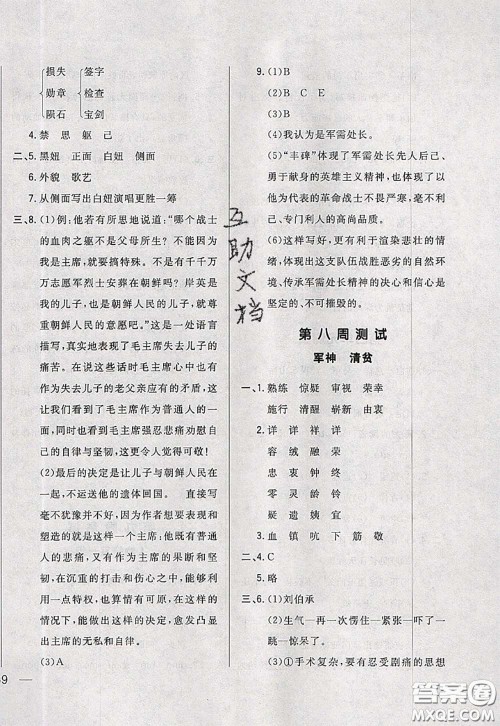 损失 签字
勋章 检查
陨石 宝剑
4. 禁 思 躯 己
二、5. 黑妞 正面 白妞 侧面
6. 外貌 歌艺
7. 从侧面写出白妞演唱更胜一筹
三、8. (1)例:他若有所思地说道:“哪个战士
的血肉之躯不是父母所生?不能因为
我是主席,就要搞特殊。不是有千千万
万志愿军烈士安葬在朝鲜吗?岸英是
我的儿子,也是朝鲜人民的儿子,就尊
重朝鲜人民的意愿吧。”这一处是语言
描写,真实地表现了毛主席失去儿子的
痛苦。在说这些话时毛主席内心中
作为失去儿子的老父亲应有的矛盾,这
让我们看到了毛主席作为普通人的一
面,同时也看到毛主席强忍悲痛劝慰自
己的自律与坚韧,这更令人觉得可敬!
(2)最后的决定是让儿子与朝鲜人民在
一起,不运送他的遗体回国。 直接写
毫不犹豫并不好,因为这样的描写和
塑造的就成了一位主席:他既有普通人
悲痛,又有作为主席的果断和坚韧,
在沉重的打击和伤心之中,他能够利
用一点特权,也算情有可原,在这样的
情况下,他却做出这样的决定,愈发凸
显出主席的无私和自律。
(3)A
(1)B
(2)B C E
(3)B
(4)我认为是军需处长。
(5)“丰碑”体现了军需处长先人后己、
勇于献身的英雄主义精神,也体现了以
他为代表的革命战士不畏严寒、毫不利
己、专门利人的高尚品质。
(6)这样写,更有利于渲染悲壮的情
境,体现这支队伍战胜恶劣的自然环
境、传承军需处长精神的决心和信心是
坚定的、不可摧毁的。
第八周测试
军神 清贫
一、1. 熟练 惊疑 审视 荣幸
施行 清醒 崭新 由衷
2. 详 详 祥 详
容 绒 融 荣
忠 衷 钟 终
零 灵 龄 铃
疑 遗 姨 宜
3. 血 镇 吭 下 筋 敬
二、4. C
5. 略
三、6. (1)刘伯承
(2)生气→再一次愣住→紧张→吓了一
跳→惊呆了
(3)①手术复杂,要有忍受剧痛的思想
互助文档
9
答案圈
MXQE.COM